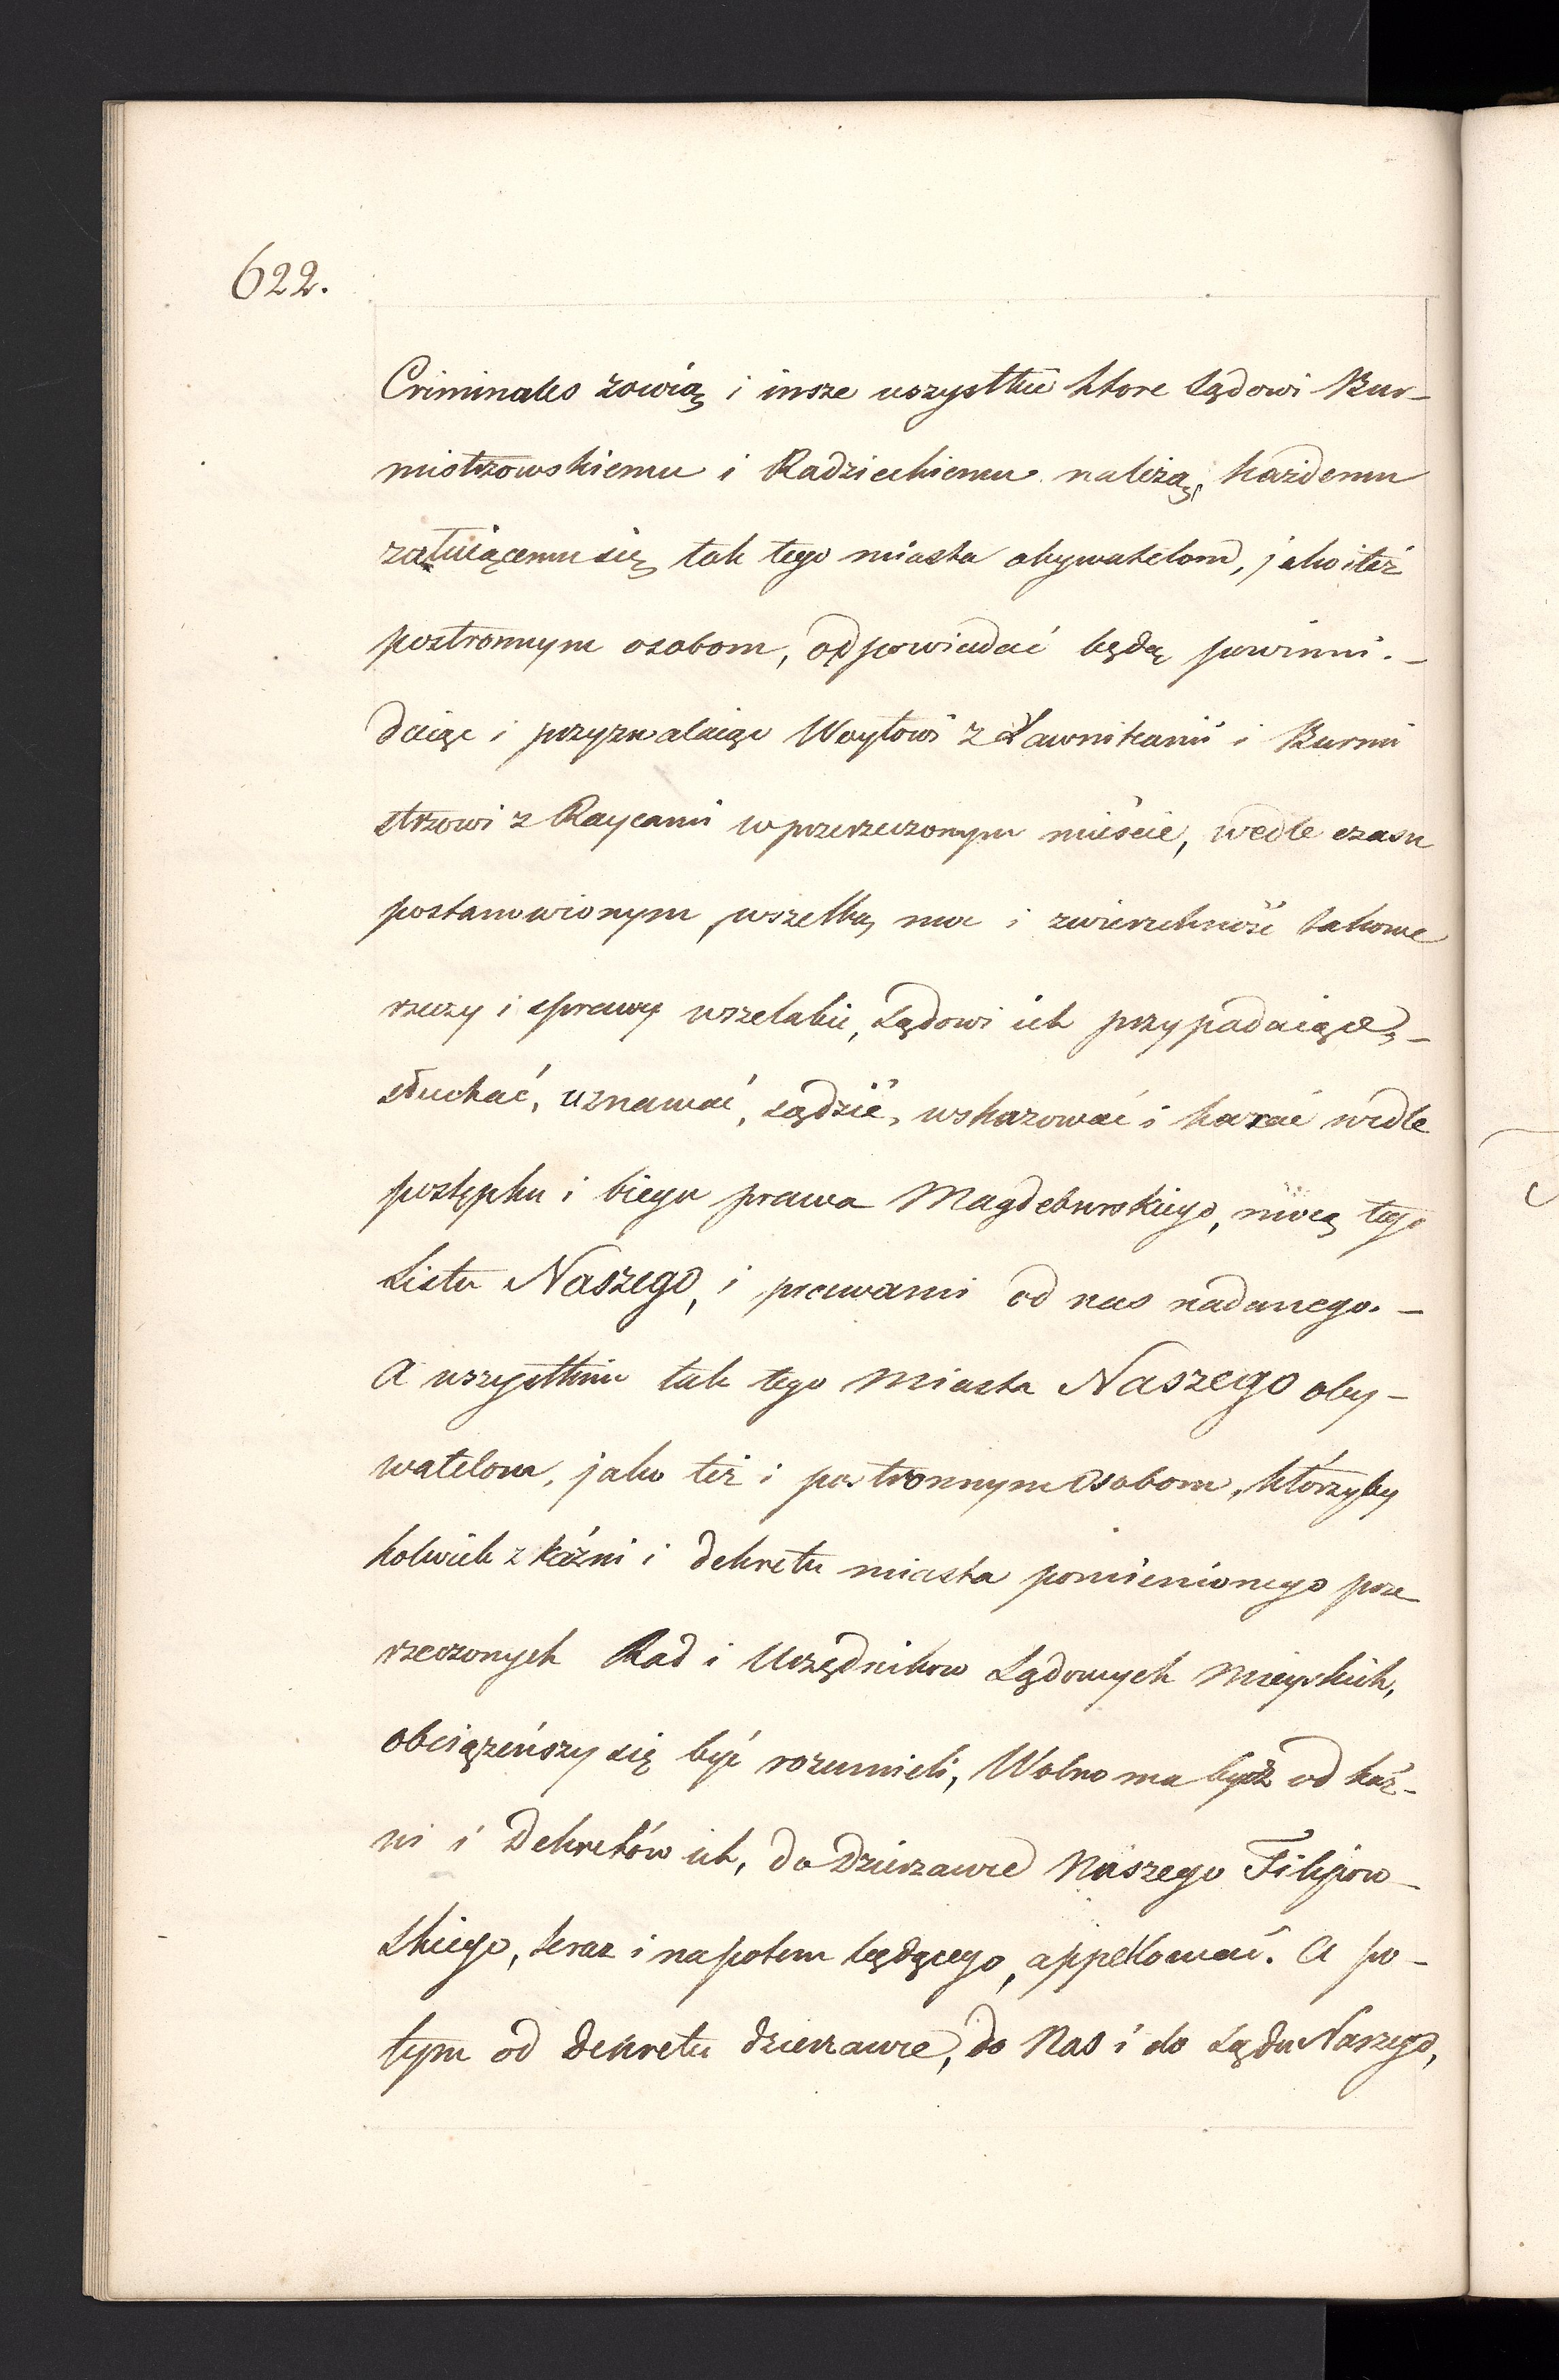 622.
Criminales zowią i insze wszystkie ktore Sądowi Bur-
mistrzowskiemu i Radzieckiemu należą, każdemu
załuiącemu się, tak tego miasta obywatelom, jako też
postronnym osobom, odpowiadać będą powinni. -
daiąc i przyzwalaiąc Woytowi z Ławnikami i Burmi
strzowi z Raycami w przerzeczonym mieście, wedle czasu
postanowionym, wszelką moc i zwierzchność takowe
rzeczy i sprawy wszelakie, Sądowi ich przypadaiące, -
słuchać, uznawać, sądzić, wskazować i karać wedle
postępku i biegu prawa Magdeburskiego, mocą tego
Listu Naszego, i prawami od nas nadanego. -
A wszystkim tak tego Miasta Naszego oby-
watelom, jako też i postronnym osobom, którzyby
kolwiek z kaźni i dekretu miasta pomienionego prze
rzeczonych Rad i Urzędnikow Sądowych Mieyskich,
obciążeńszy się być rozumieli, Wolno ma bydź od kaź-
ni i Dekretów ich, do Dzierzawce Naszego Filipow-
skiego, teraz i napotem będącego, appellować. A po-
tym od Dekretu dzierzawce, do Nas i do Sądu Naszego,